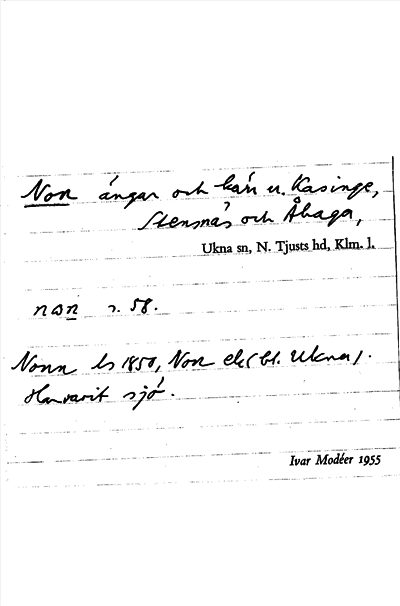 Non ängar och kärr u. Kasinge,
Stensnäs och Åhaga,
Ukna sn, N. Tjusts hd, Klm. l.
non s. 58.
Nonn ls 1850, Non ek (bl. Ukna).
Har varit sjö.
Ivar Modéer 1955